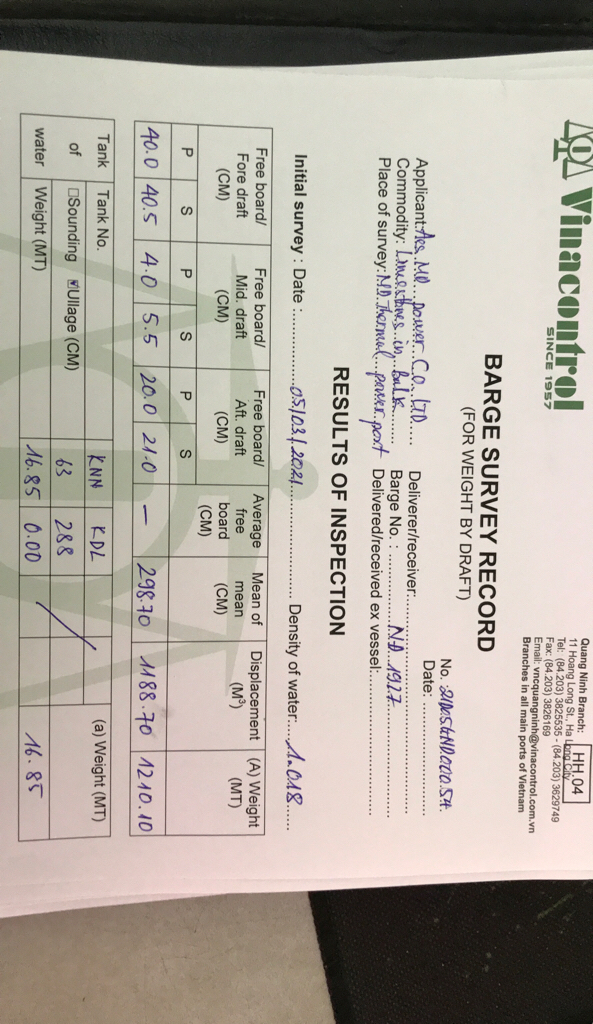 Vinacontrol
SINCE 1957
Quang Ninh Branch:
HH.04
11 Hoang Long St., Ha Long City
Tel: (84.203) 3825535 - (84.203) 3629749
Fax: (84.203) 3826169
Email: vncquangninh@vinacontrol.com.vn
Branches in all main ports of Vietnam
BARGE SURVEY RECORD
(FOR WEIGHT BY DRAFT)
No.
Date:
Applicant: Aes MD power CO., LTD Deliverer/receiver:
Commodity: Limestones in bulk Barge No. : ND 1927
Place of survey: MD Thermal power port Delivered/received ex vessel:
RESULTS OF INSPECTION
Initial survey : Date : 05/03/2021 Density of water: 1.018
Free board/ Free board/ Free board/ Average Mean of Displacement (A) Weight
Fore draft Mid. draft Aft. draft free mean (M³) (MT)
(CM) (CM) (CM) board (CM)
(CM)
P S P S P S
40.0 40.5 4.0 5.5 20.0 21.0 – 298.70 1188.70 1210.10
Tank Tank No. KNN KDL (a) Weight (MT)
of □Sounding ☑Ullage (CM) 63 288
water Weight (MT) 16.85 0.00 16.85